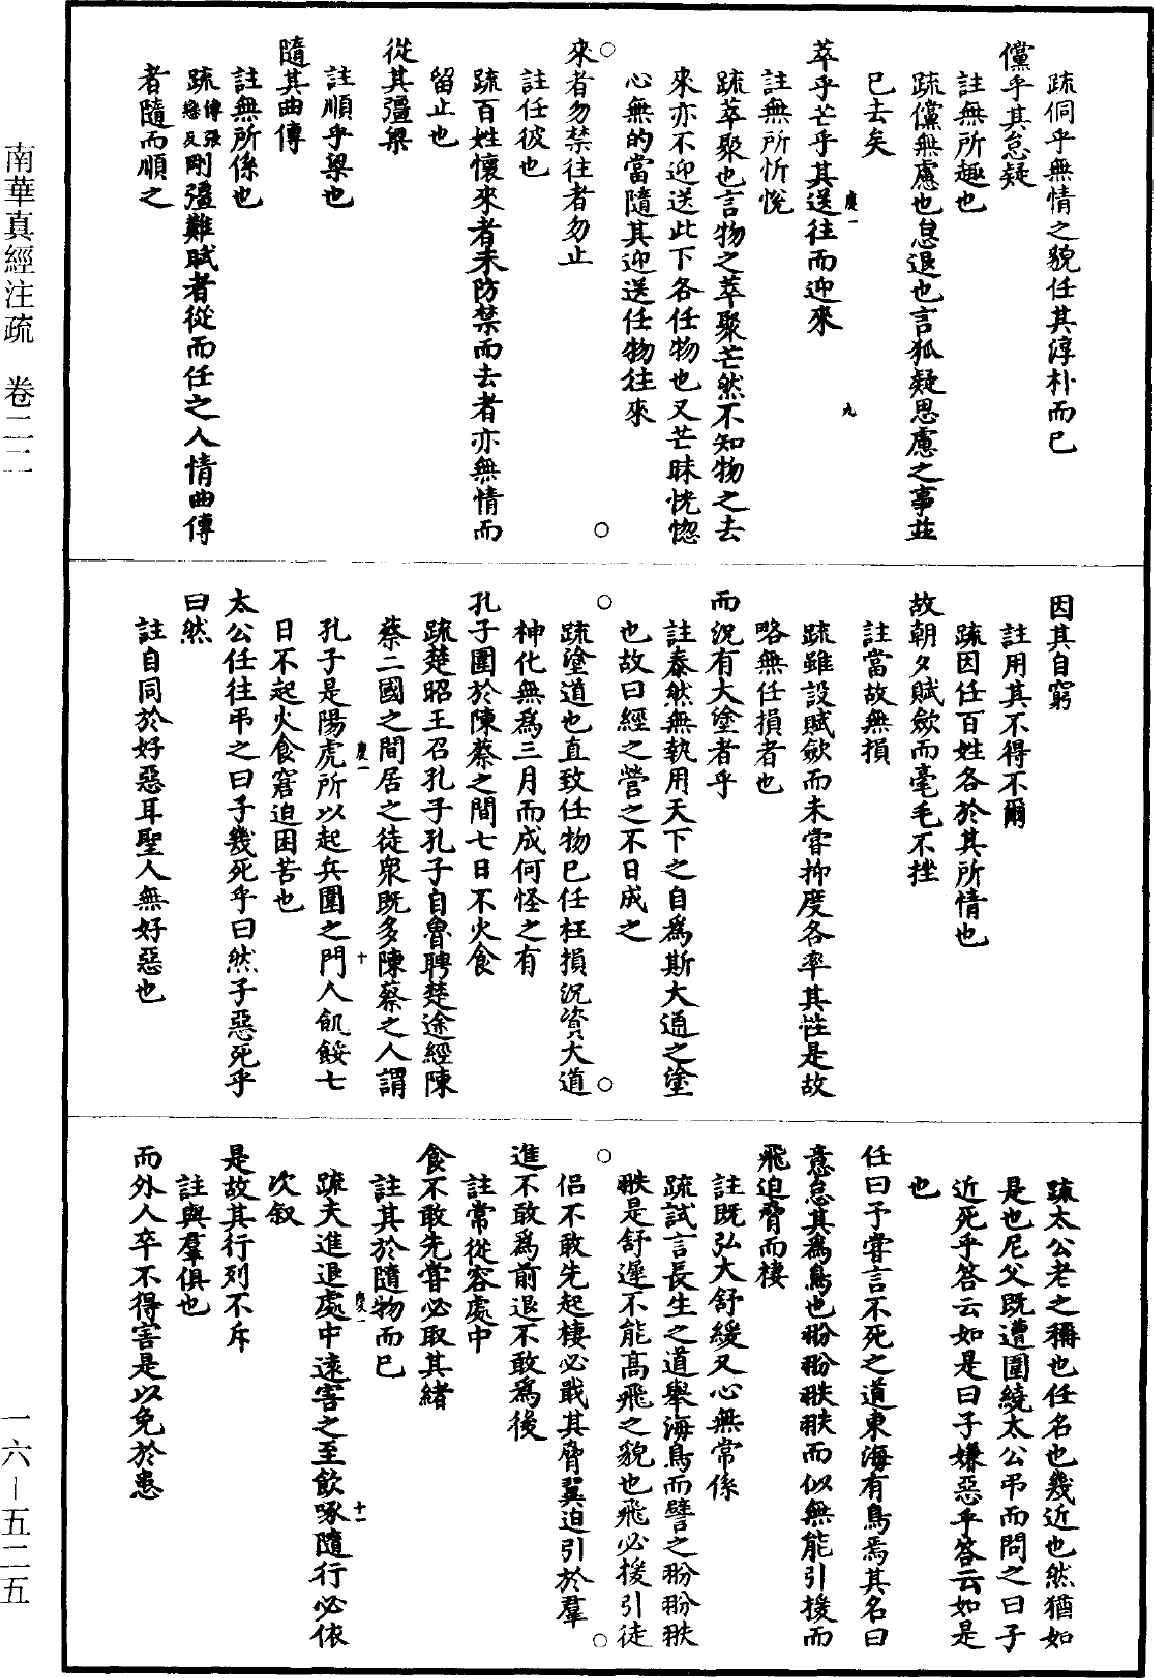 疏侗乎無情之貌任其淳朴而已
儻乎其怠疑
註無所趣也
疏儻無慮也怠退也言狐疑思慮之事並
已去矣
萃乎芒乎其送往而迎來
註無所忻悅
疏萃聚也言物之萃聚芒然不知物之去
來亦不迎送此下各任物也又芒昧恍惚
心無的當隨其迎送任物往來
來者勿禁往者勿止
註任彼也
疏百姓懷來者未防禁而去者亦無情而
留止也
從其彊梁
註順乎梁也
隨其曲傅
註無所係也
疏傅張戀反剛彊難賦者從而任之人情曲傅
者隨而順之
因其自窮
註用其不得不爾
疏因任百姓各於其所情也
故朝夕賦斂而毫毛不挫
註當故無損
疏雖設賦斂而未嘗抑度各率其性是故
略無任損者也
而況有大塗者乎
註泰然無執用天下之自為斯大通之塗
也故曰經之營之不日成之
疏塗道也直致任物已任枉損況資大道
神化無為三月而成何怪之有
孔子圍於陳蔡之間七日不火食
疏楚昭王召孔子孔子自魯聘楚途經陳
蔡二國之間居之徒眾既多陳蔡之人謂
孔子是陽虎所以起兵圍之門人飢餒七
日不起火食窘迫困苦也
太公任往弔之曰子幾死乎曰然子惡死乎
曰然
註自同於好惡耳聖人無好惡也
疏太公老之稱也任名也幾近也然猶如
是也尼父既遭圍繞太公弔而問之曰子
近死乎答云如是曰子嫌惡乎答云如是
也
任曰予嘗言不死之道東海有鳥焉其名曰
意怠其為鳥也翂翂翐翐而似無能引援而
飛迫脅而棲
註既弘大舒緩又心無常係
疏試言長生之道舉海鳥而譬之翂翂翐
翐是舒遲不能高飛之貌也飛必援引徒
侶不敢先起棲必戢其脅翼迫引於羣
進不敢為前退不敢為後
註常從容處中
食不敢先嘗必取其緒
註其於隨物而已
疏夫進退處中遠害之至飲啄隨行必依
次敘
是故其行列不斥
註與羣俱也
而外人卒不得害是以免於患
南華真經注疏　卷二二
一六—五二五